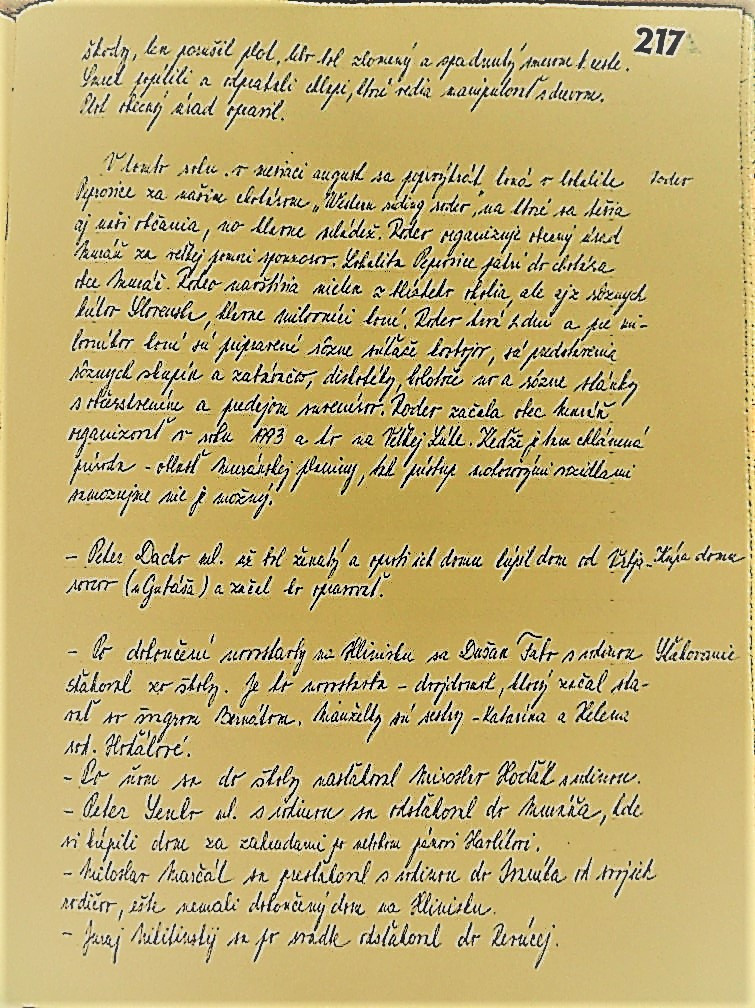 217
škody, len porušil plot, kto bol zlomený a spadnutý smerom k ceste.
Smrek popílili a odpratali chlapi, ktorí vedia manipulovať s drevom.
Plot obecný úrad opravil.
V tomto roku v mesiaci august sa po prvýkrát koná v lokalite
Rodeo
Peprovice za našim chotárom „Western riding rodeo", na ktoré sa tešia
aj naši občania, no hlavne mládež. Rodeo organizuje obecný úrad
Muráň za veľkej pomoci sponzorov. Lokalita Peprovice patrí do chotára
obce Muráň. Rodeo navštívia nielen z blízkeho okolia, ale aj z rôznych
kútov Slovenska, hlavne milovníci koní. Rodeo trvá 2 dni a pre mi-
lovníkov koní sú pripravené rôzne súťaže kovbojov, sú predstavenia
rôznych skupín a zabávačov, diskotéky, kolotoče no a rôzne stánky
s občerstvením a predajom suvenírov. Rodeo začala obec Muráň
organizovať v roku 1993 a to na Veľkej Lúke. Keďže je tam chránená
príroda - oblasť Muránskej planiny, tak prístup motorovými vozidlami
samozrejme nie je možný.
- Peter Dacho ml. už bol ženatý a oproti ich domu kúpil dom od
Kúpa domu
rovcov (u Gubáša) a začal ho opravovať.
- Po dokončení novostavby na Hlinisku sa Dušan Fabo s rodinou
Sťahovanie
sťahoval zo školy. Je to novostavba - dvojdomok, ktorý začal sta-
vať so švagrom Bernátom. Manželky sú sestry - Katarína a Helena
rod. Hodálové.
- Po ňom sa do školy nasťahoval Miroslav Hoďák s rodinou.
- Peter Senko ml. s rodinou sa odsťahoval do Muráňa, kde
si kúpili dom za zahradami po nebohom pánovi
- Miloslav Marčák sa presťahoval s rodinou do od svojich
rodičov, ešte nemali dokončený dom na Hlinisku.
- Juraj Mikitinský sa po svadbe odsťahoval do Revúcej.